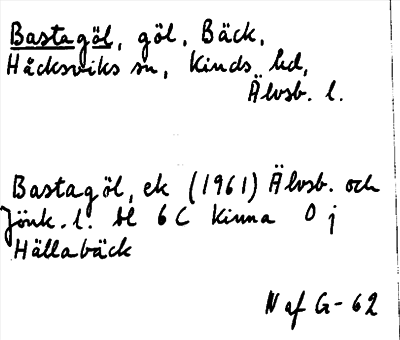 Bastagöl, göl, Bäck,
Håcksviks sn, Kinds hd,
Älvsb. l.
Bastagöl, ek (1961) Älvsb. och
Jönk. l. bl 6 C Kinna 0 j
Hällabäck
N af G-62